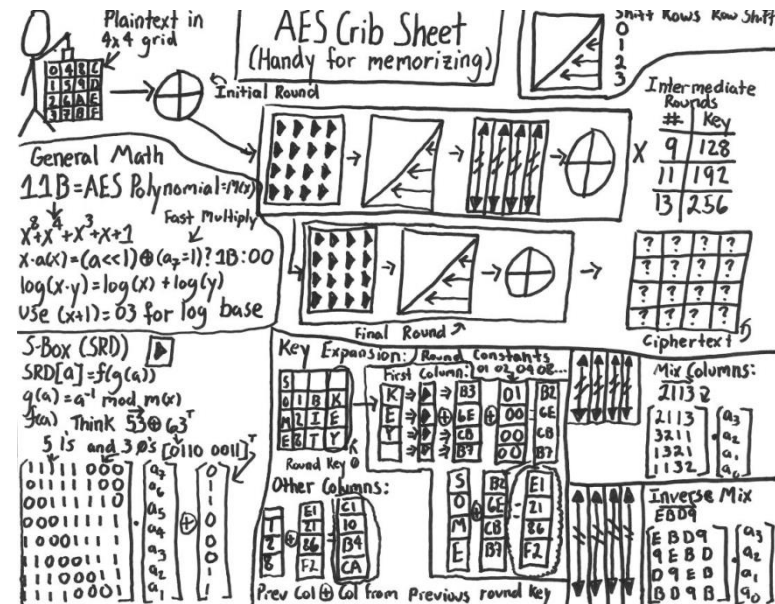 Plaintext in
4x4 grid
0 4 8 C
1 5 9 D
2 6 A E
3 7 B F
Initial Round
AES Crib Sheet
(Handy for memorizing)
Shift Rows Row Shift
0
1
2
3
Intermediate
Rounds
# Key
9 128
11 192
13 256
X
General Math
11B=AES Polynomial=M(x)
x⁸+x⁴+x³+x+1
Fast Multiply
x·a(x)=(a<<1)⊕(a₇=1)?1B:00
log(x·y)=log(x)+log(y)
Use (x+1)=03 for log base
Final Round
? ? ? ?
? ? ? ?
? ? ? ?
? ? ? ?
Ciphertext
S-Box (SRD)
SRD[a]=f(g(a))
g(a)=a⁻¹ mod m(x)
f(a) Think 53⊕63ᵀ
5 1's and 3 0's [0110 0011]ᵀ
1 1 1 1 1 0 0 0
0 1 1 1 1 1 0 0
0 0 1 1 1 1 1 0
0 0 0 1 1 1 1 1
1 0 0 0 1 1 1 1
1 1 0 0 0 1 1 1
1 1 1 0 0 0 1 1
a₇
a₆
a₅
a₄
a₃
a₂
a₁
⊕
0
1
1
0
0
0
1
Key Expansion:
Round Constants
01 02 04 08...
First Column:
S K
O 1 B K
M 2 I E
E 8 T Y
Round Key 0
K B3 01 B2
E ⊕ 6E ⊕ 00 = 6E
Y CB 00 CB
B7 00 B7
S B2 E1
O ⊕ 6E = 21
M CB 86
E B7 F2
Other Columns:
E1 C1
1 ⊕ 21 = 10
2 86 B4
8 F2 CA
Prev Col ⊕ Col from Previous round key
Mix Columns:
2113
2 1 1 3
3 2 1 1
1 3 2 1
1 1 3 2
a₃
a₂
a₁
a₀
Inverse Mix
EBD9
E B D 9
9 E B D
D 9 E B
B D 9 E
a₃
a₂
a₁
a₀